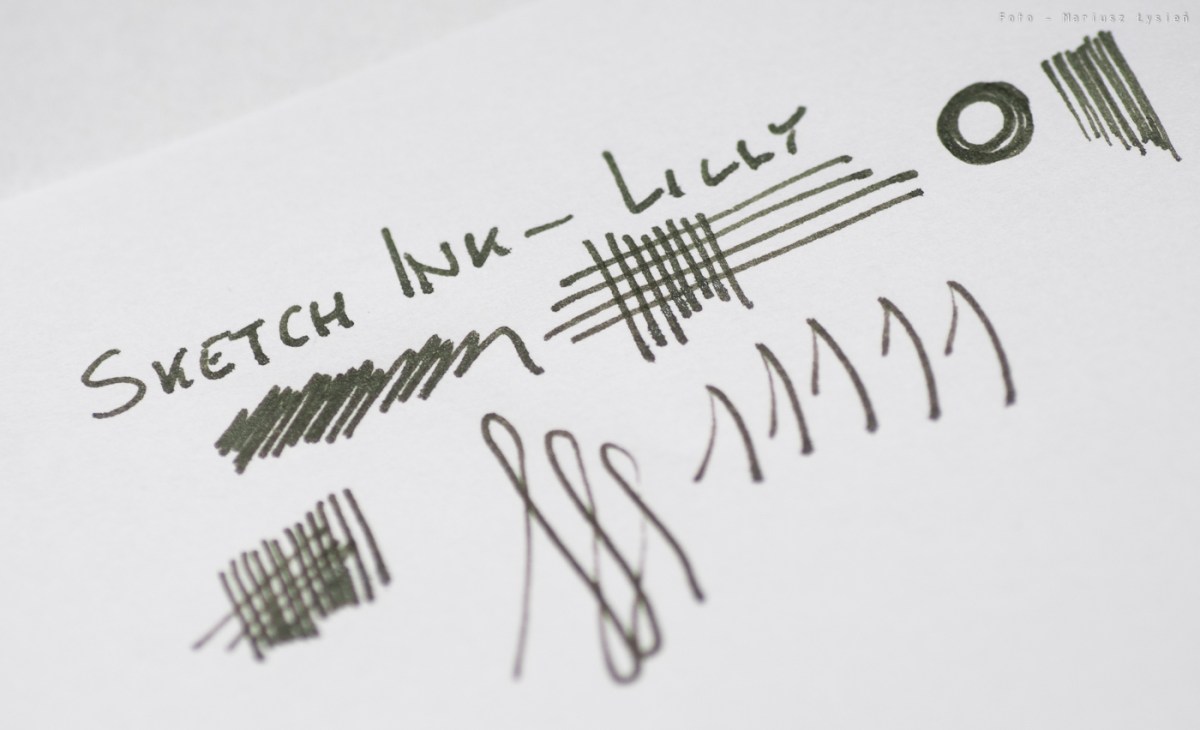 Foto - Mariusz Łysień
SKETCH INK - LILLY